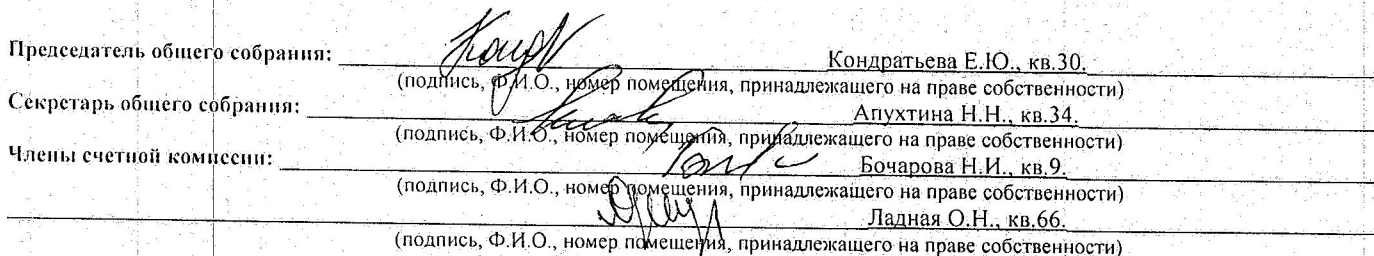 Председатель общего собрания: Кондратьева Е.Ю., кв.30.
(подпись, Ф.И.О., номер помещения, принадлежащего на праве собственности)
Секретарь общего собрания: Апухтина Н.Н., кв.34.
(подпись, Ф.И.О., номер помещения, принадлежащего на праве собственности)
Члены счетной комиссии: Бочарова Н.И., кв.9.
(подпись, Ф.И.О., номер помещения, принадлежащего на праве собственности)
Ладная О.Н., кв.66.
(подпись, Ф.И.О., номер помещения, принадлежащего на праве собственности)